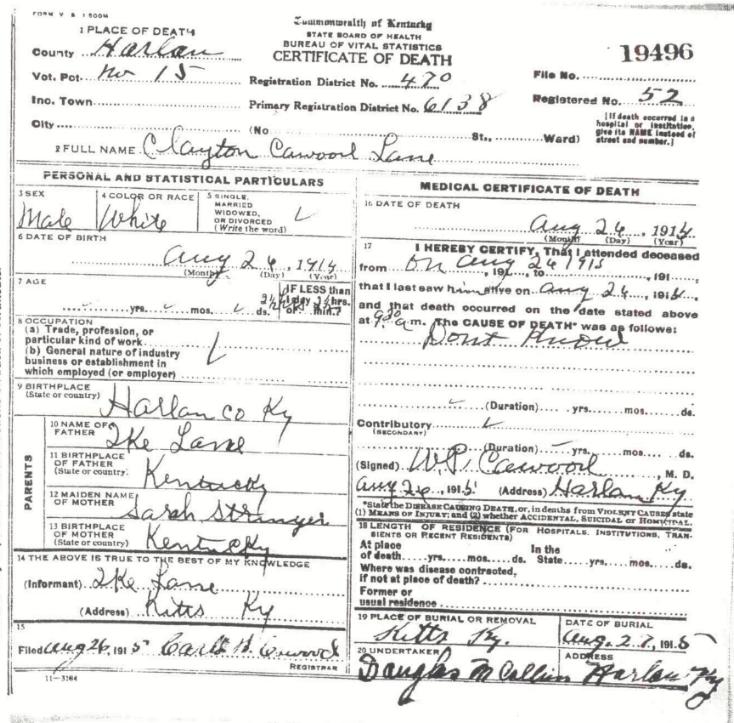 FORM V S 1 500M
1 PLACE OF DEATH
County Harlan
Vot. Pct. No 15
Inc. Town
City
Commonwealth of Kentucky
STATE BOARD OF HEALTH
BUREAU OF VITAL STATISTICS
CERTIFICATE OF DEATH
Registration District No. 470
Primary Registration District No. 6138
(No. St., Ward)
19496
File No.
Registered No. 52
[If death occurred in a
hospital or institution,
give its NAME instead of
street and number.]
2 FULL NAME Clayton Cawood Lane
PERSONAL AND STATISTICAL PARTICULARS
3 SEX
Male
4 COLOR OR RACE
White
5 SINGLE,
MARRIED
WIDOWED,
OR DIVORCED
(Write the word)
6 DATE OF BIRTH
Aug 26, 191
(Month) (Day) (Year)
7 AGE
yrs. mos. ds.
IF LESS than
1 day hrs.
or min.?
8 OCCUPATION
(a) Trade, profession, or
particular kind of work
(b) General nature of industry
business or establishment in
which employed (or employer)
9 BIRTHPLACE
(State or country)
Harlan co Ky
PARENTS
10 NAME OF
FATHER
Ike Lane
11 BIRTHPLACE
OF FATHER
(State or country)
Kentucky
12 MAIDEN NAME
OF MOTHER
Sarah Stringer
13 BIRTHPLACE
OF MOTHER
(State or country)
Kentucky
14 THE ABOVE IS TRUE TO THE BEST OF MY KNOWLEDGE
(Informant) Ike Lane
(Address) Kitts Ky
15
Filed Aug 26, 1915 Cawood
REGISTRAR
11-3184
MEDICAL CERTIFICATE OF DEATH
16 DATE OF DEATH
Aug 26, 1915
(Month) (Day) (Year)
17 I HEREBY CERTIFY, That I attended deceased
from on Aug 26 1915, 191, to, 191
that I last saw him alive on Aug 26, 1915,
and that death occurred on the date stated above
at 9 30 a m. The CAUSE OF DEATH* was as follows:
Dont Know
(Duration) yrs. mos. ds.
Contributory
(SECONDARY)
(Duration) yrs. mos. ds.
(Signed) W.P. Cawood, M. D.
Aug 26, 1915 (Address) Harlan Ky
*State the DISEASE CAUSING DEATH, or, in deaths from VIOLENT CAUSES state
(1) MEANS OF INJURY; and (2) whether ACCIDENTAL, SUICIDAL or HOMICIDAL.
18 LENGTH OF RESIDENCE (FOR HOSPITALS, INSTITUTIONS, TRAN-
SIENTS OR RECENT RESIDENTS)
At place
of death yrs. mos. ds.
In the
State yrs. mos. ds.
Where was disease contracted,
if not at place of death?
Former or
usual residence
19 PLACE OF BURIAL OR REMOVAL
Kitts Ky.
DATE OF BURIAL
Aug. 27, 1915
20 UNDERTAKER
Douglas McCollim
ADDRESS
Harlan Ky